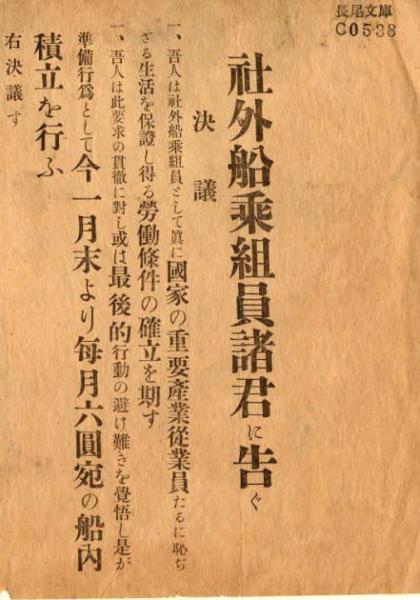 長尾文庫
C0538
社外船乘組員諸君に告ぐ
決議
一、吾人は社外船乘組員として眞に國家の重要產業從業員たるに恥ぢ
ざる生活を保證し得る勞働條件の確立を期す
一、吾人は此要求の貫徹に對し或は最後的行動の避け難きを覺悟し是が
準備行爲として今一月末より每月六圓宛の船內
積立を行ふ
右決議す